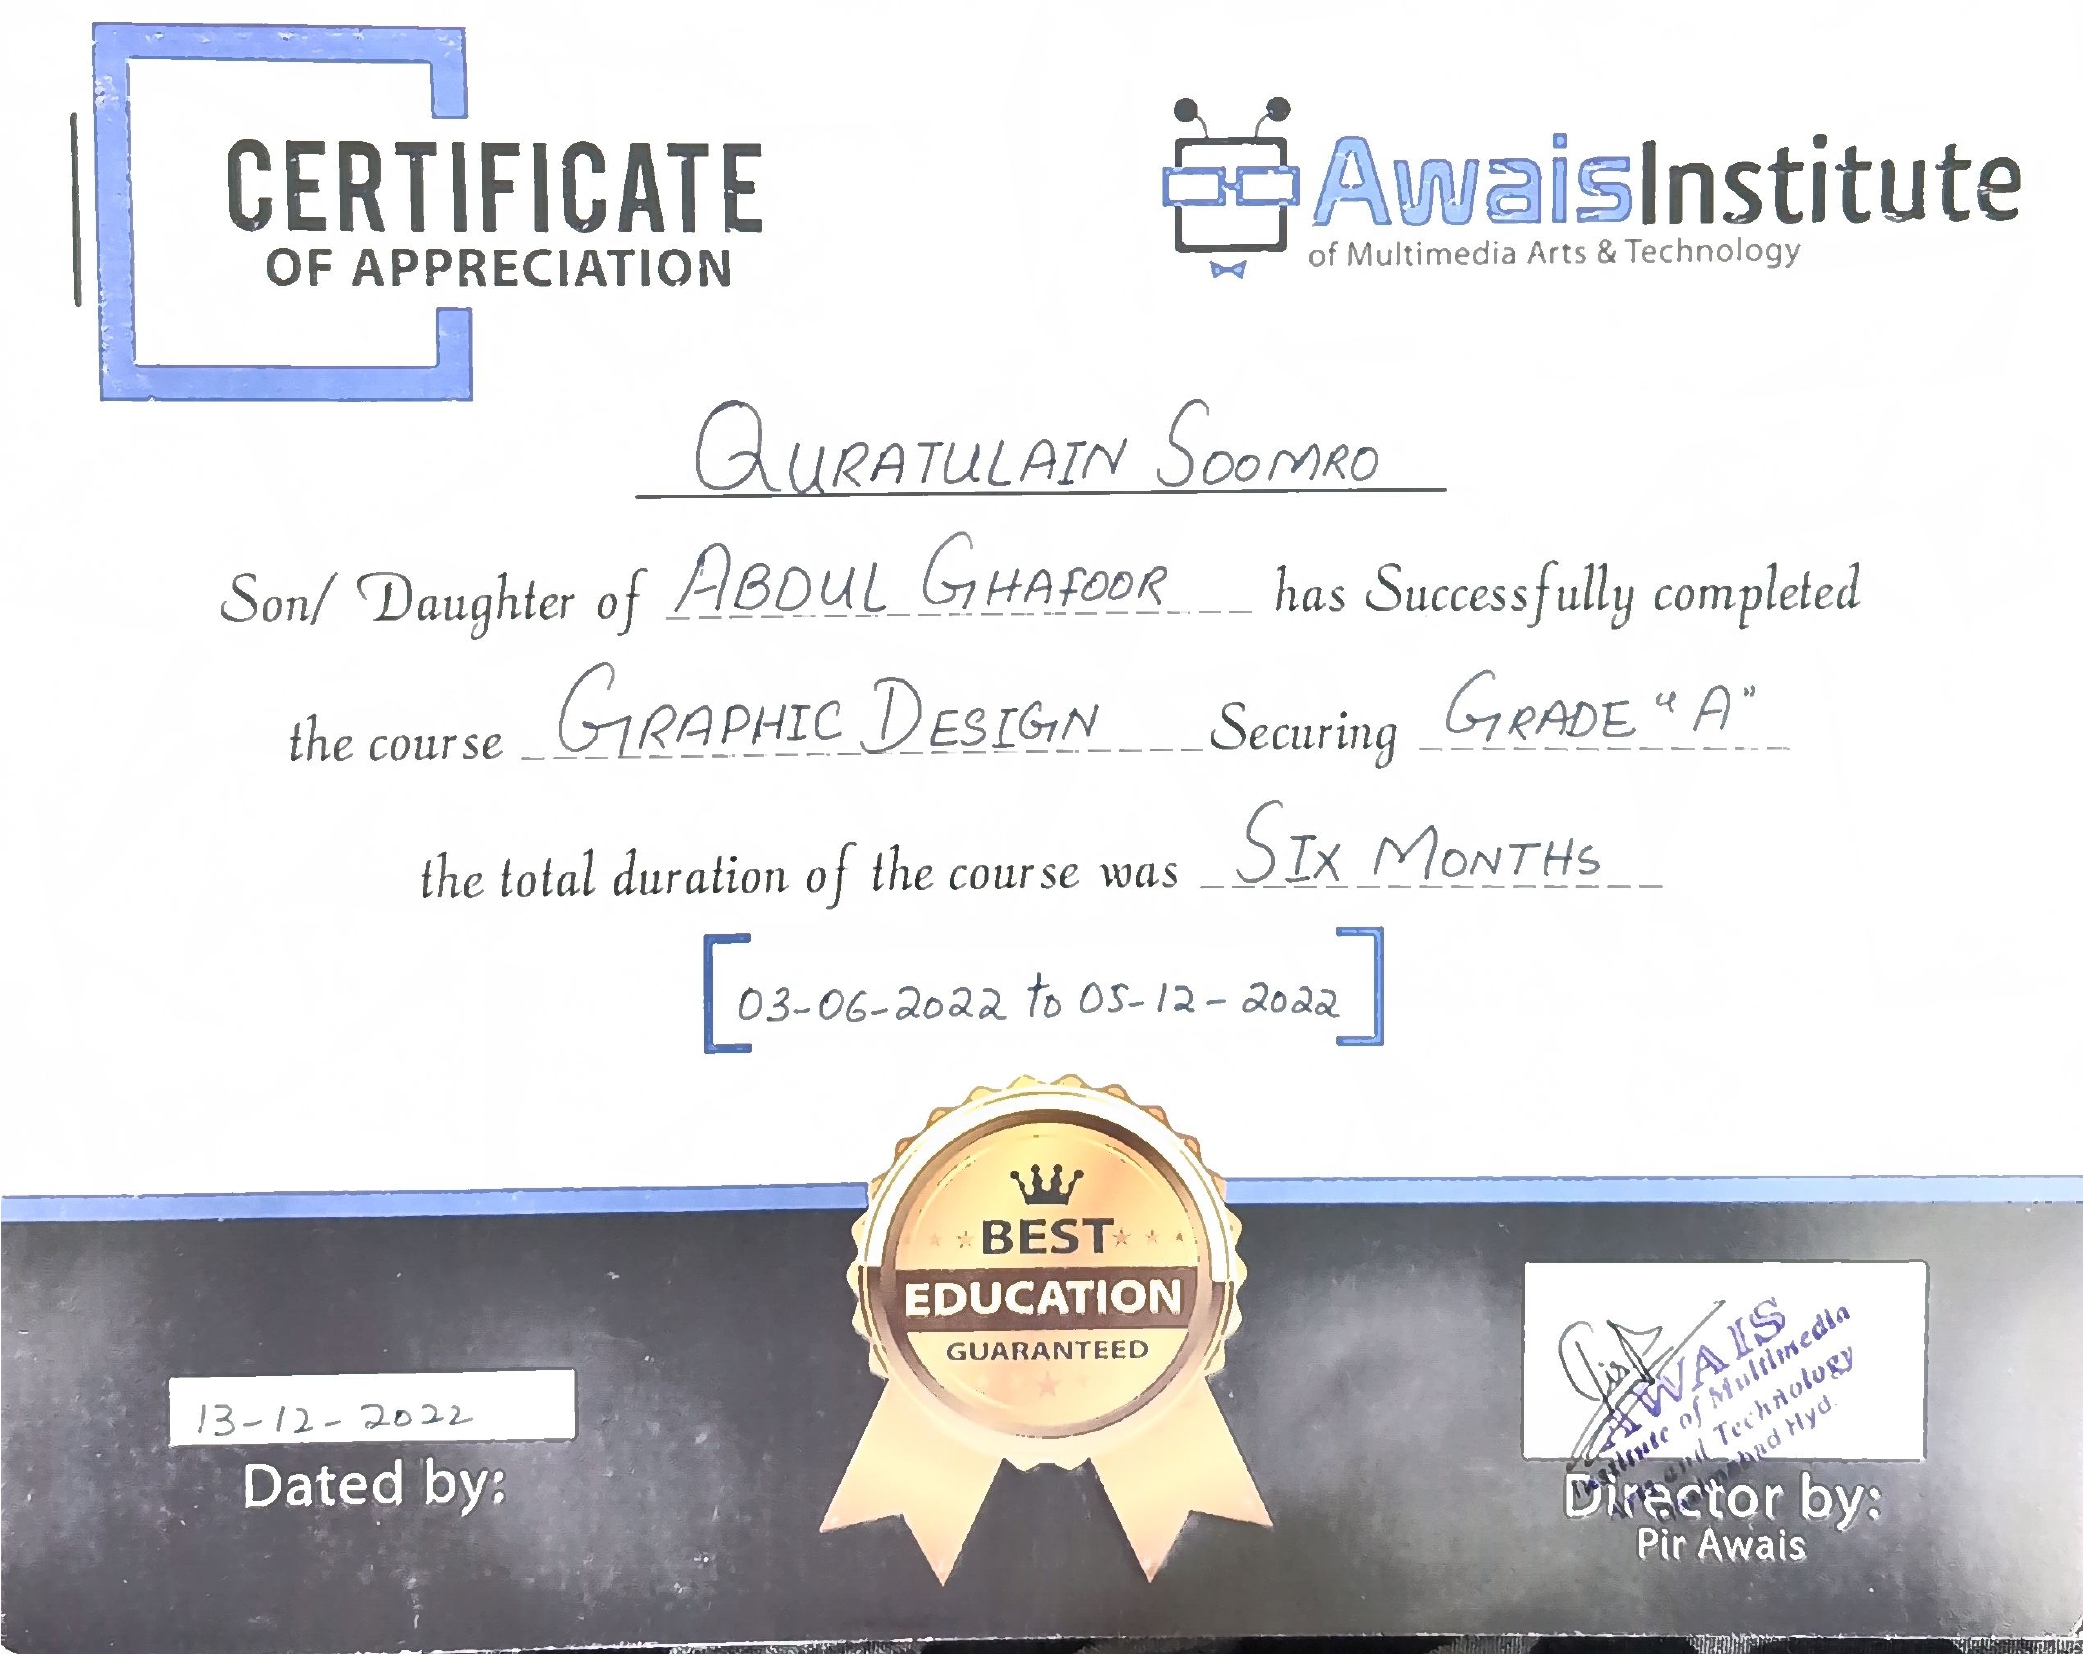 CERTIFICATE
OF APPRECIATION
AwaisInstitute
of Multimedia Arts & Technology
QURATULAIN SOOMRO
Son/ Daughter of ABDUL GHAFOOR has Successfully completed
the course GRAPHIC DESIGN Securing GRADE "A"
the total duration of the course was SIX MONTHS
[03-06-2022 to 05-12-2022]
BEST
EDUCATION
GUARANTEED
13-12-2022
Dated by:
AWAIS
Institute of Multimedia
Arts and Technology
Hyd.
Director by:
Pir Awais